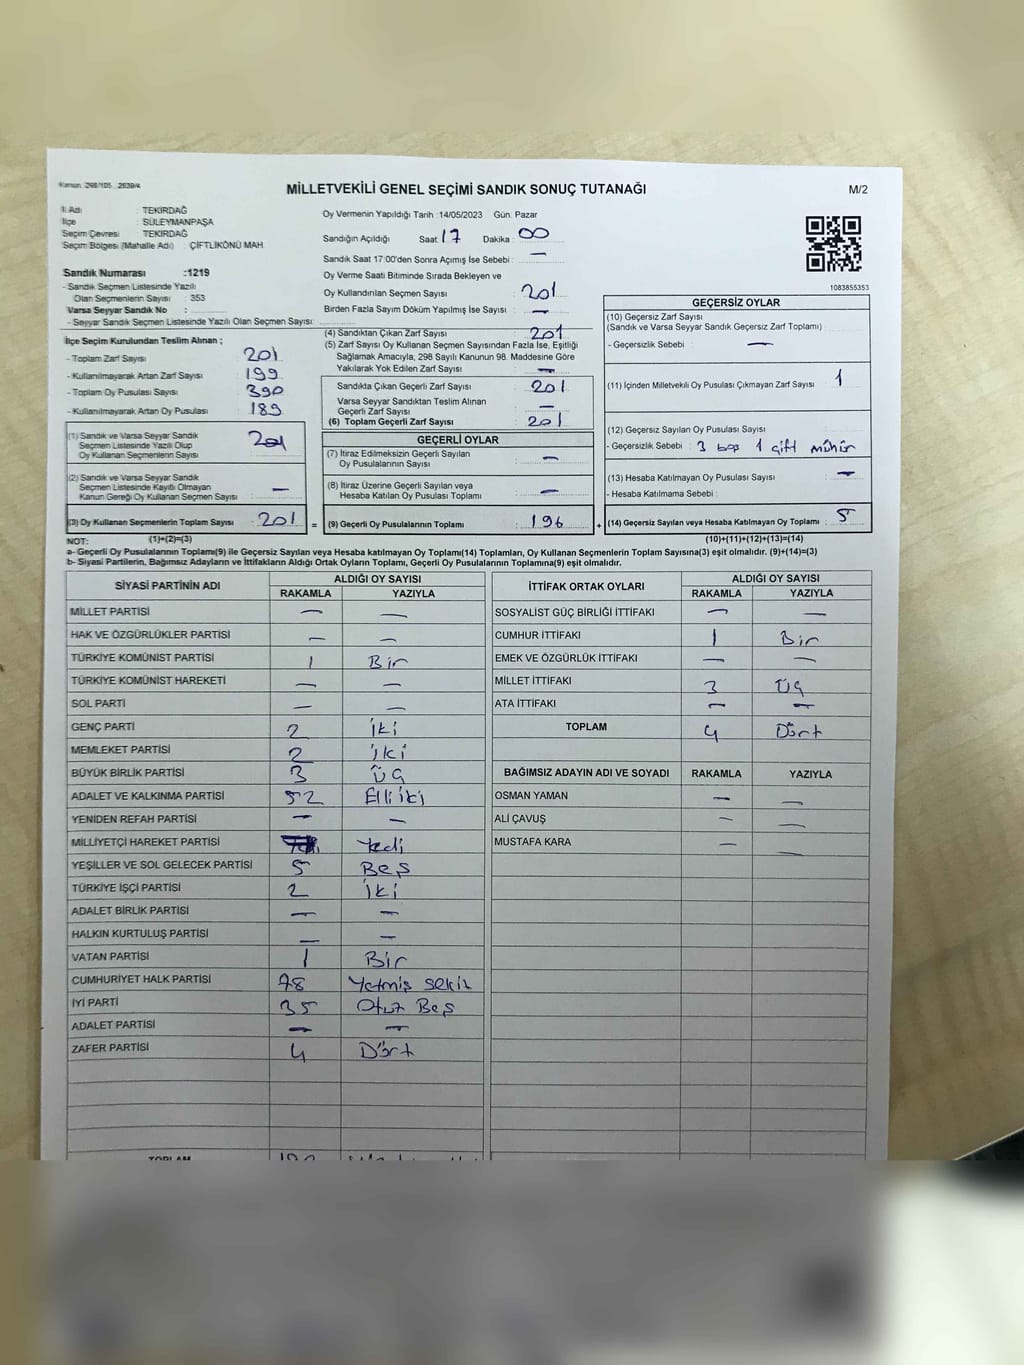 Kanun: 298/105 2839/4
MİLLETVEKİLİ GENEL SEÇİMİ SANDIK SONUÇ TUTANAĞI
M/2
İl Adı : TEKİRDAĞ
İlçe : SÜLEYMANPAŞA
Seçim Çevresi : TEKİRDAĞ
Seçim Bölgesi (Mahalle Adı) : ÇİFTLİKÖNÜ MAH
Sandık Numarası :1219
- Sandık Seçmen Listesinde Yazılı
Olan Seçmenlerin Sayısı : 353
Varsa Seyyar Sandık No :
- Seyyar Sandık Seçmen Listesinde Yazılı Olan Seçmen Sayısı:
Oy Vermenin Yapıldığı Tarih :14/05/2023 Gün: Pazar
Sandığın Açıldığı Saat: 17 Dakika : 00
Sandık Saat 17:00'den Sonra Açımış İse Sebebi : —
Oy Verme Saati Bitiminde Sırada Bekleyen ve
Oy Kullandırılan Seçmen Sayısı : 201
Birden Fazla Sayım Döküm Yapılmış İse Sayısı : —
1083855353
İlçe Seçim Kurulundan Teslim Alınan ;
- Toplam Zarf Sayısı : 201
- Kullanılmayarak Artan Zarf Sayısı : 199
- Toplam Oy Pusulası Sayısı : 390
- Kullanılmayarak Artan Oy Pusulası : 189
(1) Sandık ve Varsa Seyyar Sandık
Seçmen Listesinde Yazılı Olup
Oy Kullanan Seçmenlerin Sayısı : 201
(2) Sandık ve Varsa Seyyar Sandık
Seçmen Listesinde Kayıtlı Olmayan
Kanun Gereği Oy Kullanan Seçmen Sayısı : —
(3) Oy Kullanan Seçmenlerin Toplam Sayısı : 201 =
(4) Sandıktan Çıkan Zarf Sayısı : 201
(5) Zarf Sayısı Oy Kullanan Seçmen Sayısından Fazla İse, Eşitliği
Sağlamak Amacıyla, 298 Sayılı Kanunun 98. Maddesine Göre
Yakılarak Yok Edilen Zarf Sayısı : —
Sandıkta Çıkan Geçerli Zarf Sayısı : 201
Varsa Seyyar Sandıktan Teslim Alınan
Geçerli Zarf Sayısı : —
(6) Toplam Geçerli Zarf Sayısı : 201
GEÇERLİ OYLAR
(7) İtiraz Edilmeksizin Geçerli Sayılan
Oy Pusulalarının Sayısı : —
(8) İtiraz Üzerine Geçerli Sayılan veya
Hesaba Katılan Oy Pusulası Toplamı : —
(9) Geçerli Oy Pusulalarının Toplamı : 196 +
GEÇERSİZ OYLAR
(10) Geçersiz Zarf Sayısı
(Sandık ve Varsa Seyyar Sandık Geçersiz Zarf Toplamı)
- Geçersizlik Sebebi : —
(11) İçinden Milletvekili Oy Pusulası Çıkmayan Zarf Sayısı : 1
(12) Geçersiz Sayılan Oy Pusulası Sayısı :
- Geçersizlik Sebebi : 3 boş 1 çift mühür
(13) Hesaba Katılmayan Oy Pusulası Sayısı : —
- Hesaba Katılmama Sebebi :
(14) Geçersiz Sayılan veya Hesaba Katılmayan Oy Toplamı : 5
NOT: (1)+(2)=(3) (10)+(11)+(12)+(13)=(14)
a- Geçerli Oy Pusulalarının Toplamı(9) ile Geçersiz Sayılan veya Hesaba katılmayan Oy Toplamı(14) Toplamları, Oy Kullanan Seçmenlerin Toplam Sayısına(3) eşit olmalıdır. (9)+(14)=(3)
b- Siyasi Partilerin, Bağımsız Adayların ve İttifakların Aldığı Ortak Oyların Toplamı, Geçerli Oy Pusulalarının Toplamına(9) eşit olmalıdır.
SİYASİ PARTİNİN ADI ALDIĞI OY SAYISI
RAKAMLA YAZIYLA
MİLLET PARTİSİ — —
HAK VE ÖZGÜRLÜKLER PARTİSİ — —
TÜRKİYE KOMÜNİST PARTİSİ 1 Bir
TÜRKİYE KOMÜNİST HAREKETİ — —
SOL PARTİ — —
GENÇ PARTİ 2 iki
MEMLEKET PARTİSİ 2 iki
BÜYÜK BİRLİK PARTİSİ 3 üç
ADALET VE KALKINMA PARTİSİ 52 Elliiki
YENİDEN REFAH PARTİSİ — —
MİLLİYETÇİ HAREKET PARTİSİ Yedi
YEŞİLLER VE SOL GELECEK PARTİSİ 5 Beş
TÜRKİYE İŞÇİ PARTİSİ 2 iki
ADALET BİRLİK PARTİSİ — —
HALKIN KURTULUŞ PARTİSİ — —
VATAN PARTİSİ 1 Bir
CUMHURİYET HALK PARTİSİ 78 Yetmiş sekiz
İYİ PARTİ 35 Otuz Beş
ADALET PARTİSİ — —
ZAFER PARTİSİ 4 Dört
TOPLAM
İTTİFAK ORTAK OYLARI ALDIĞI OY SAYISI
RAKAMLA YAZIYLA
SOSYALİST GÜÇ BİRLİĞİ İTTİFAKI — —
CUMHUR İTTİFAKI 1 Bir
EMEK VE ÖZGÜRLÜK İTTİFAKI — —
MİLLET İTTİFAKI 3 Üç
ATA İTTİFAKI — —
TOPLAM 4 Dört
BAĞIMSIZ ADAYIN ADI VE SOYADI RAKAMLA YAZIYLA
OSMAN YAMAN — —
ALİ ÇAVUŞ — —
MUSTAFA KARA — —